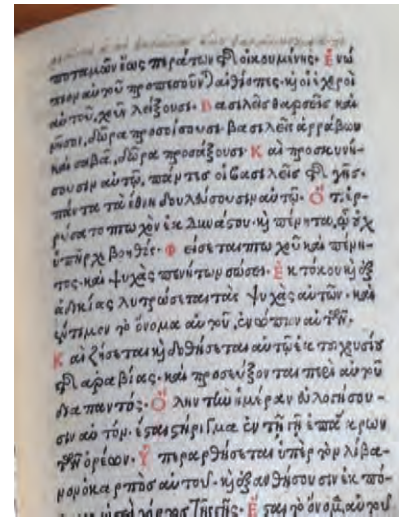 ποταμῶν ἕως περάτων τῆς οἰκουμένης· Ἐνώ
πιον αὐτοῦ προπεσοῦνται αἰθίοπες· κὴ οἱ ἐχθροὶ
αὐτοῦ, χοῦν λείξουσι· Βασιλεῖς θαρσεῖς καὶ
νῆσοι, δῶρα προσοίσουσι· βασιλεῖς ἀρράβων
καὶ σαβᾶ, δῶρα προσάξουσι· Καὶ προσκυνή-
σουσιν αὐτῷ, πάντες οἱ βασιλεῖς τῆς γῆς·
πάντα τὰ ἔθνη δουλεύσουσιν αὐτῷ· Ὅτι ἐρ-
ρύσατο πτωχὸν ἐκ δυνάστου· κὴ πένητα, ᾧ οὐχ
ὑπῆρχε βοηθός· Φείσεται πτωχοῦ καὶ πένη-
τος· καὶ ψυχὰς πενήτων σώσει· Ἐκ τόκου κὴ ἐξ
ἀδικίας λυτρώσεται τὰς ψυχὰς αὐτῶν· καὶ
ἔντιμον τὸ ὄνομα αὐτοῦ, ἐνώπιον αὐτῶν·
Καὶ ζήσεται κὴ δοθήσεται αὐτῷ ἐκ τοῦ χρυσίου
τῆς ἀραβίας· καὶ προσεύξονται περὶ αὐτοῦ
διὰ παντός· Ὅλην τὴν ἡμέραν εὐλογήσου-
σιν αὐτόν· ἔσται στήριγμα ἐν τῇ γῇ ἐπ' ἄκρων
τῶν ὀρέων· Ὑπεραρθήσεται ὑπὲρ τὸν λίβα-
νον ὁ καρπὸς αὐτοῦ· κὴ ἐξανθήσουσιν ἐκ πό-
λεως ὡσεὶ χόρτος τῆς γῆς· Ἔσται τὸ ὄνομα αὐτοῦ